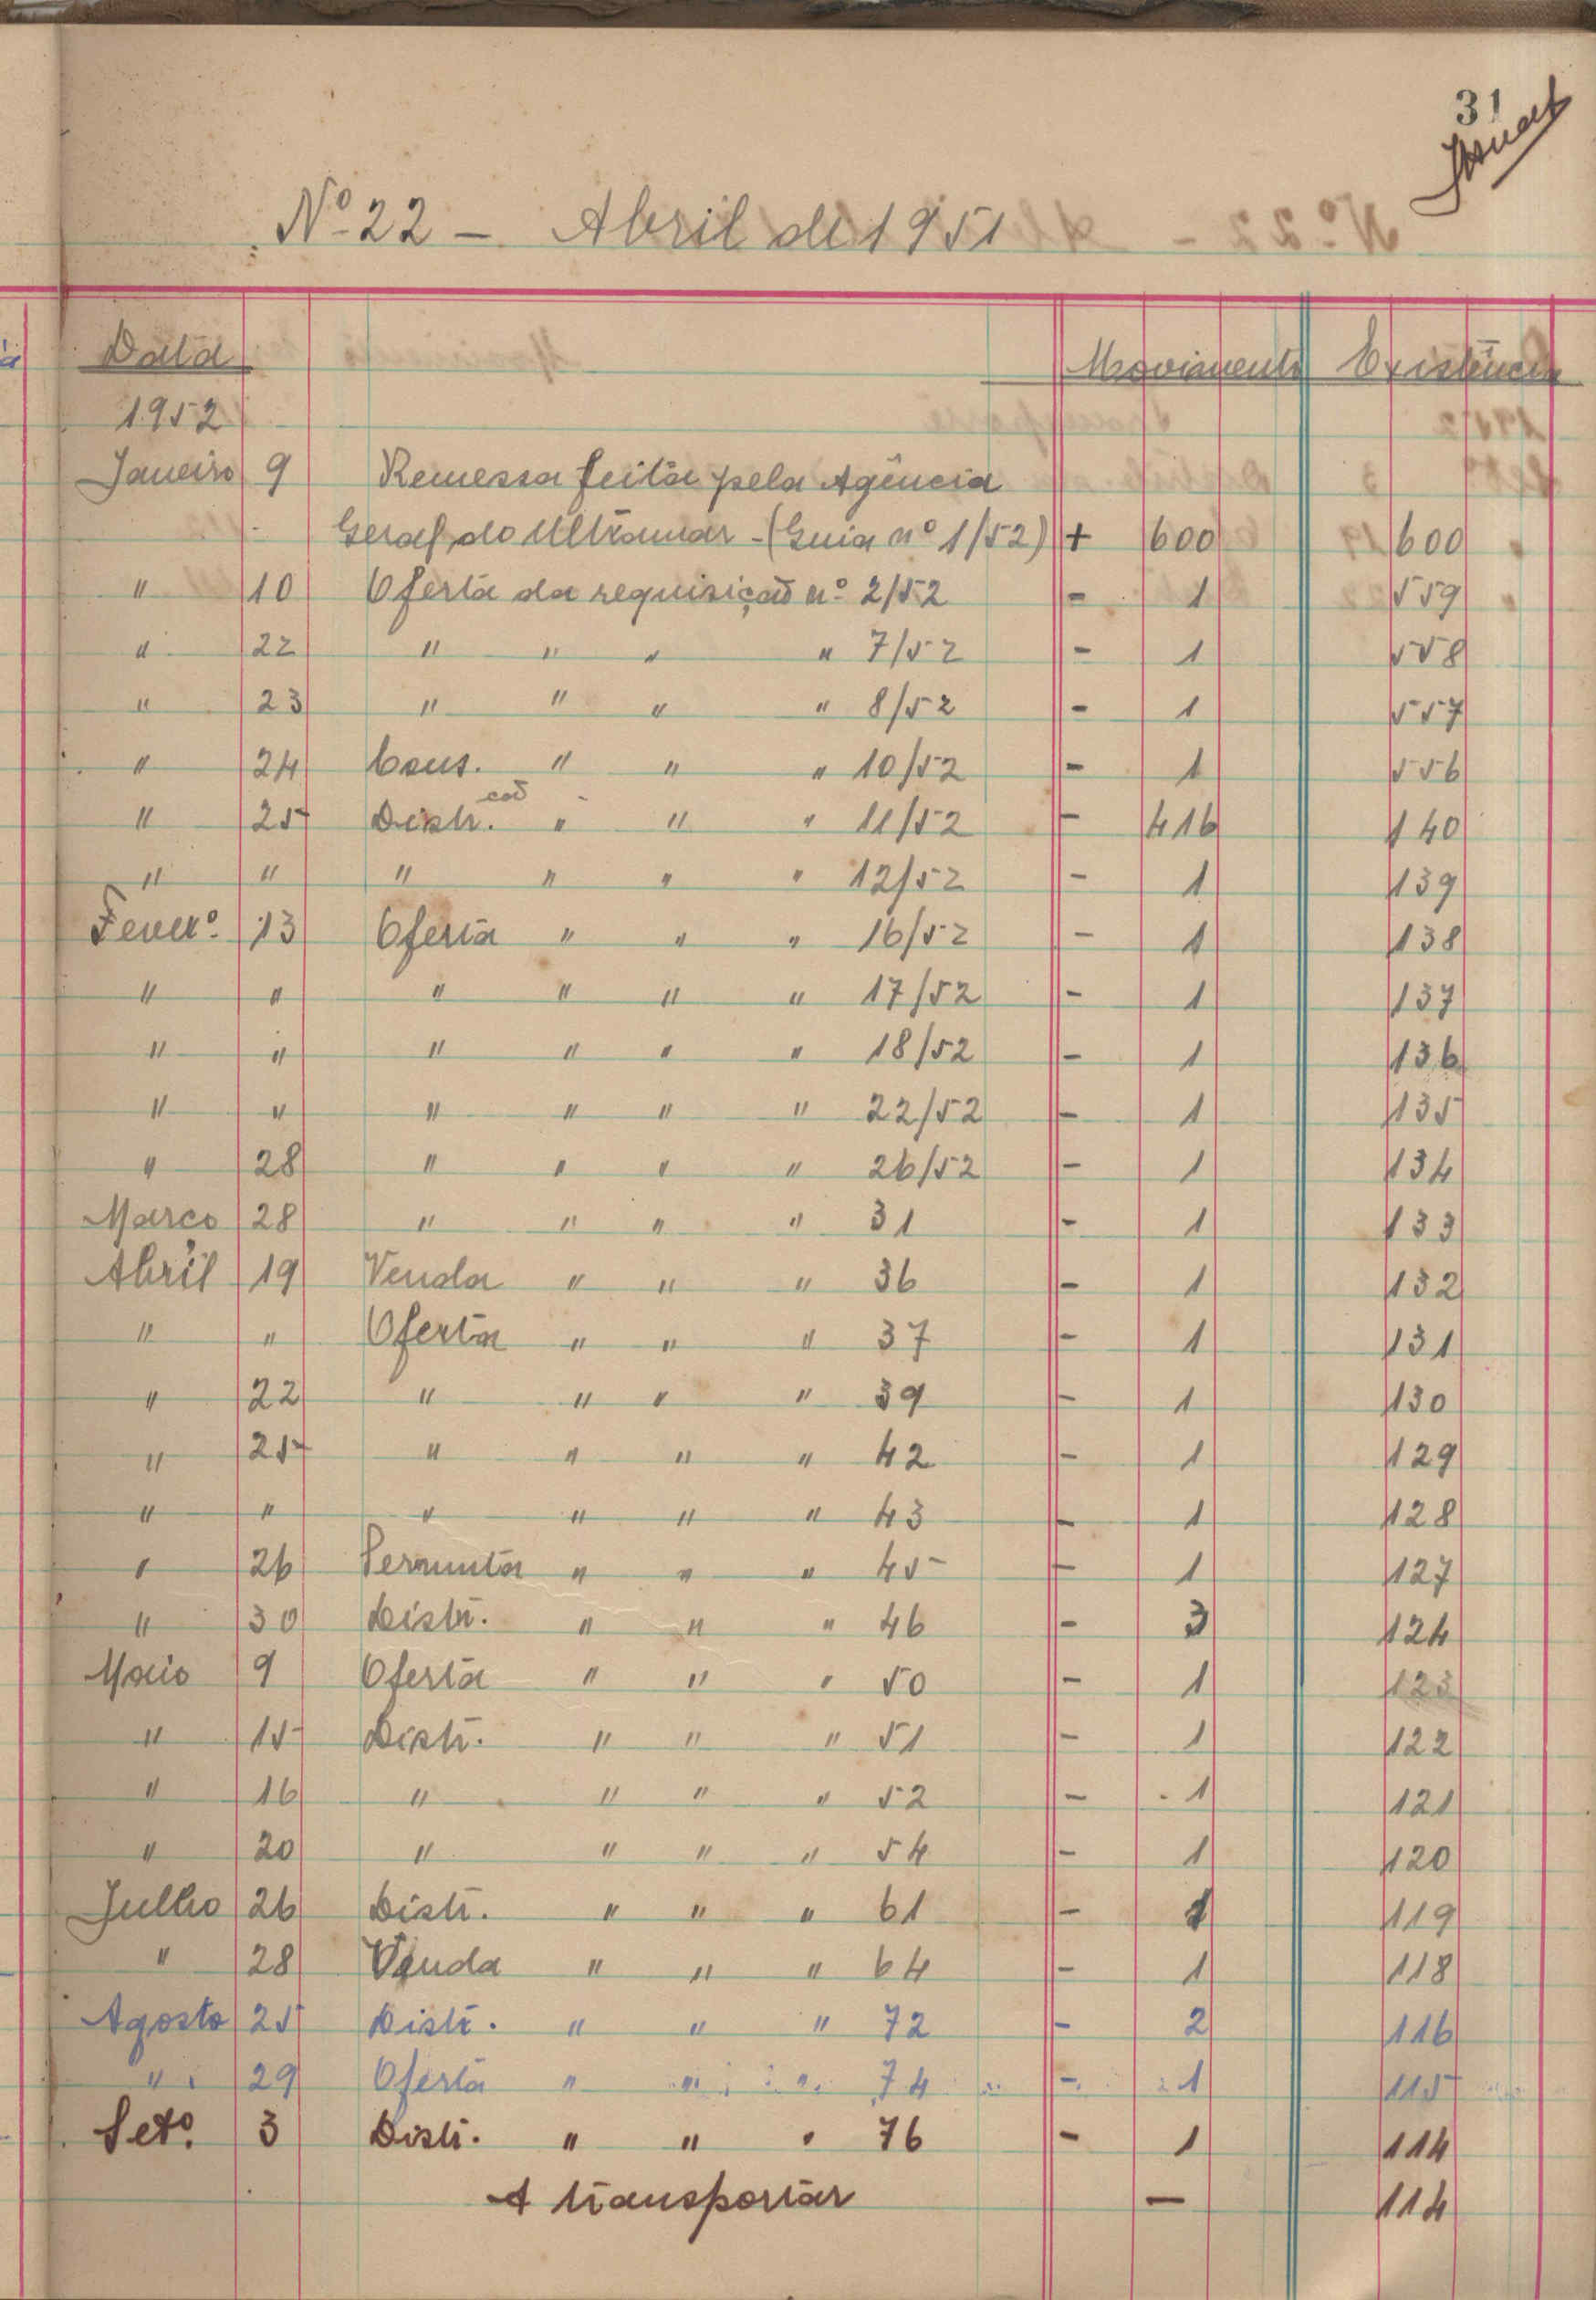 31
Nº 22 - Abril de 1951
Data Movimento Existência
1952
Janeiro 9 Remessa feita pela Agência
Geral do Ultramar - (Guia nº 1/52) + 600 600
" 10 Oferta da requisição nº 2/52 - 1 559
" 22 " " " " 7/52 - 1 558
" 23 " " " " 8/52 - 1 557
" 24 Cons. " " " 10/52 - 1 556
" 25 Distr.ção " " " 11/52 - 416 140
" " " " " " 12/52 - 1 139
Feverº 13 Oferta " " " 16/52 - 1 138
" " " " " " 17/52 - 1 137
" " " " " " 18/52 - 1 136
" " " " " " 22/52 - 1 135
" 28 " " " " 26/52 - 1 134
Março 28 " " " " 31 - 1 133
Abril 19 Venda " " " 36 - 1 132
" " Oferta " " " 37 - 1 131
" 22 " " " " 39 - 1 130
" 25 " " " " 42 - 1 129
" " " " " " 43 - 1 128
" 26 Permuta " " " 45 - 1 127
" 30 Distr. " " " 46 - 3 124
Maio 9 Oferta " " " 50 - 1 123
" 15 Distr. " " " 51 - 1 122
" 16 " " " " 52 - 1 121
" 20 " " " " 54 - 1 120
Julho 26 Distr. " " " 61 - 1 119
" 28 Venda " " " 64 - 1 118
Agosto 25 Distr. " " " 72 - 2 116
" 29 Oferta " " " 74 - 1 115
Setº. 3 Distr. " " " 76 - 1 114
A transportar - 114